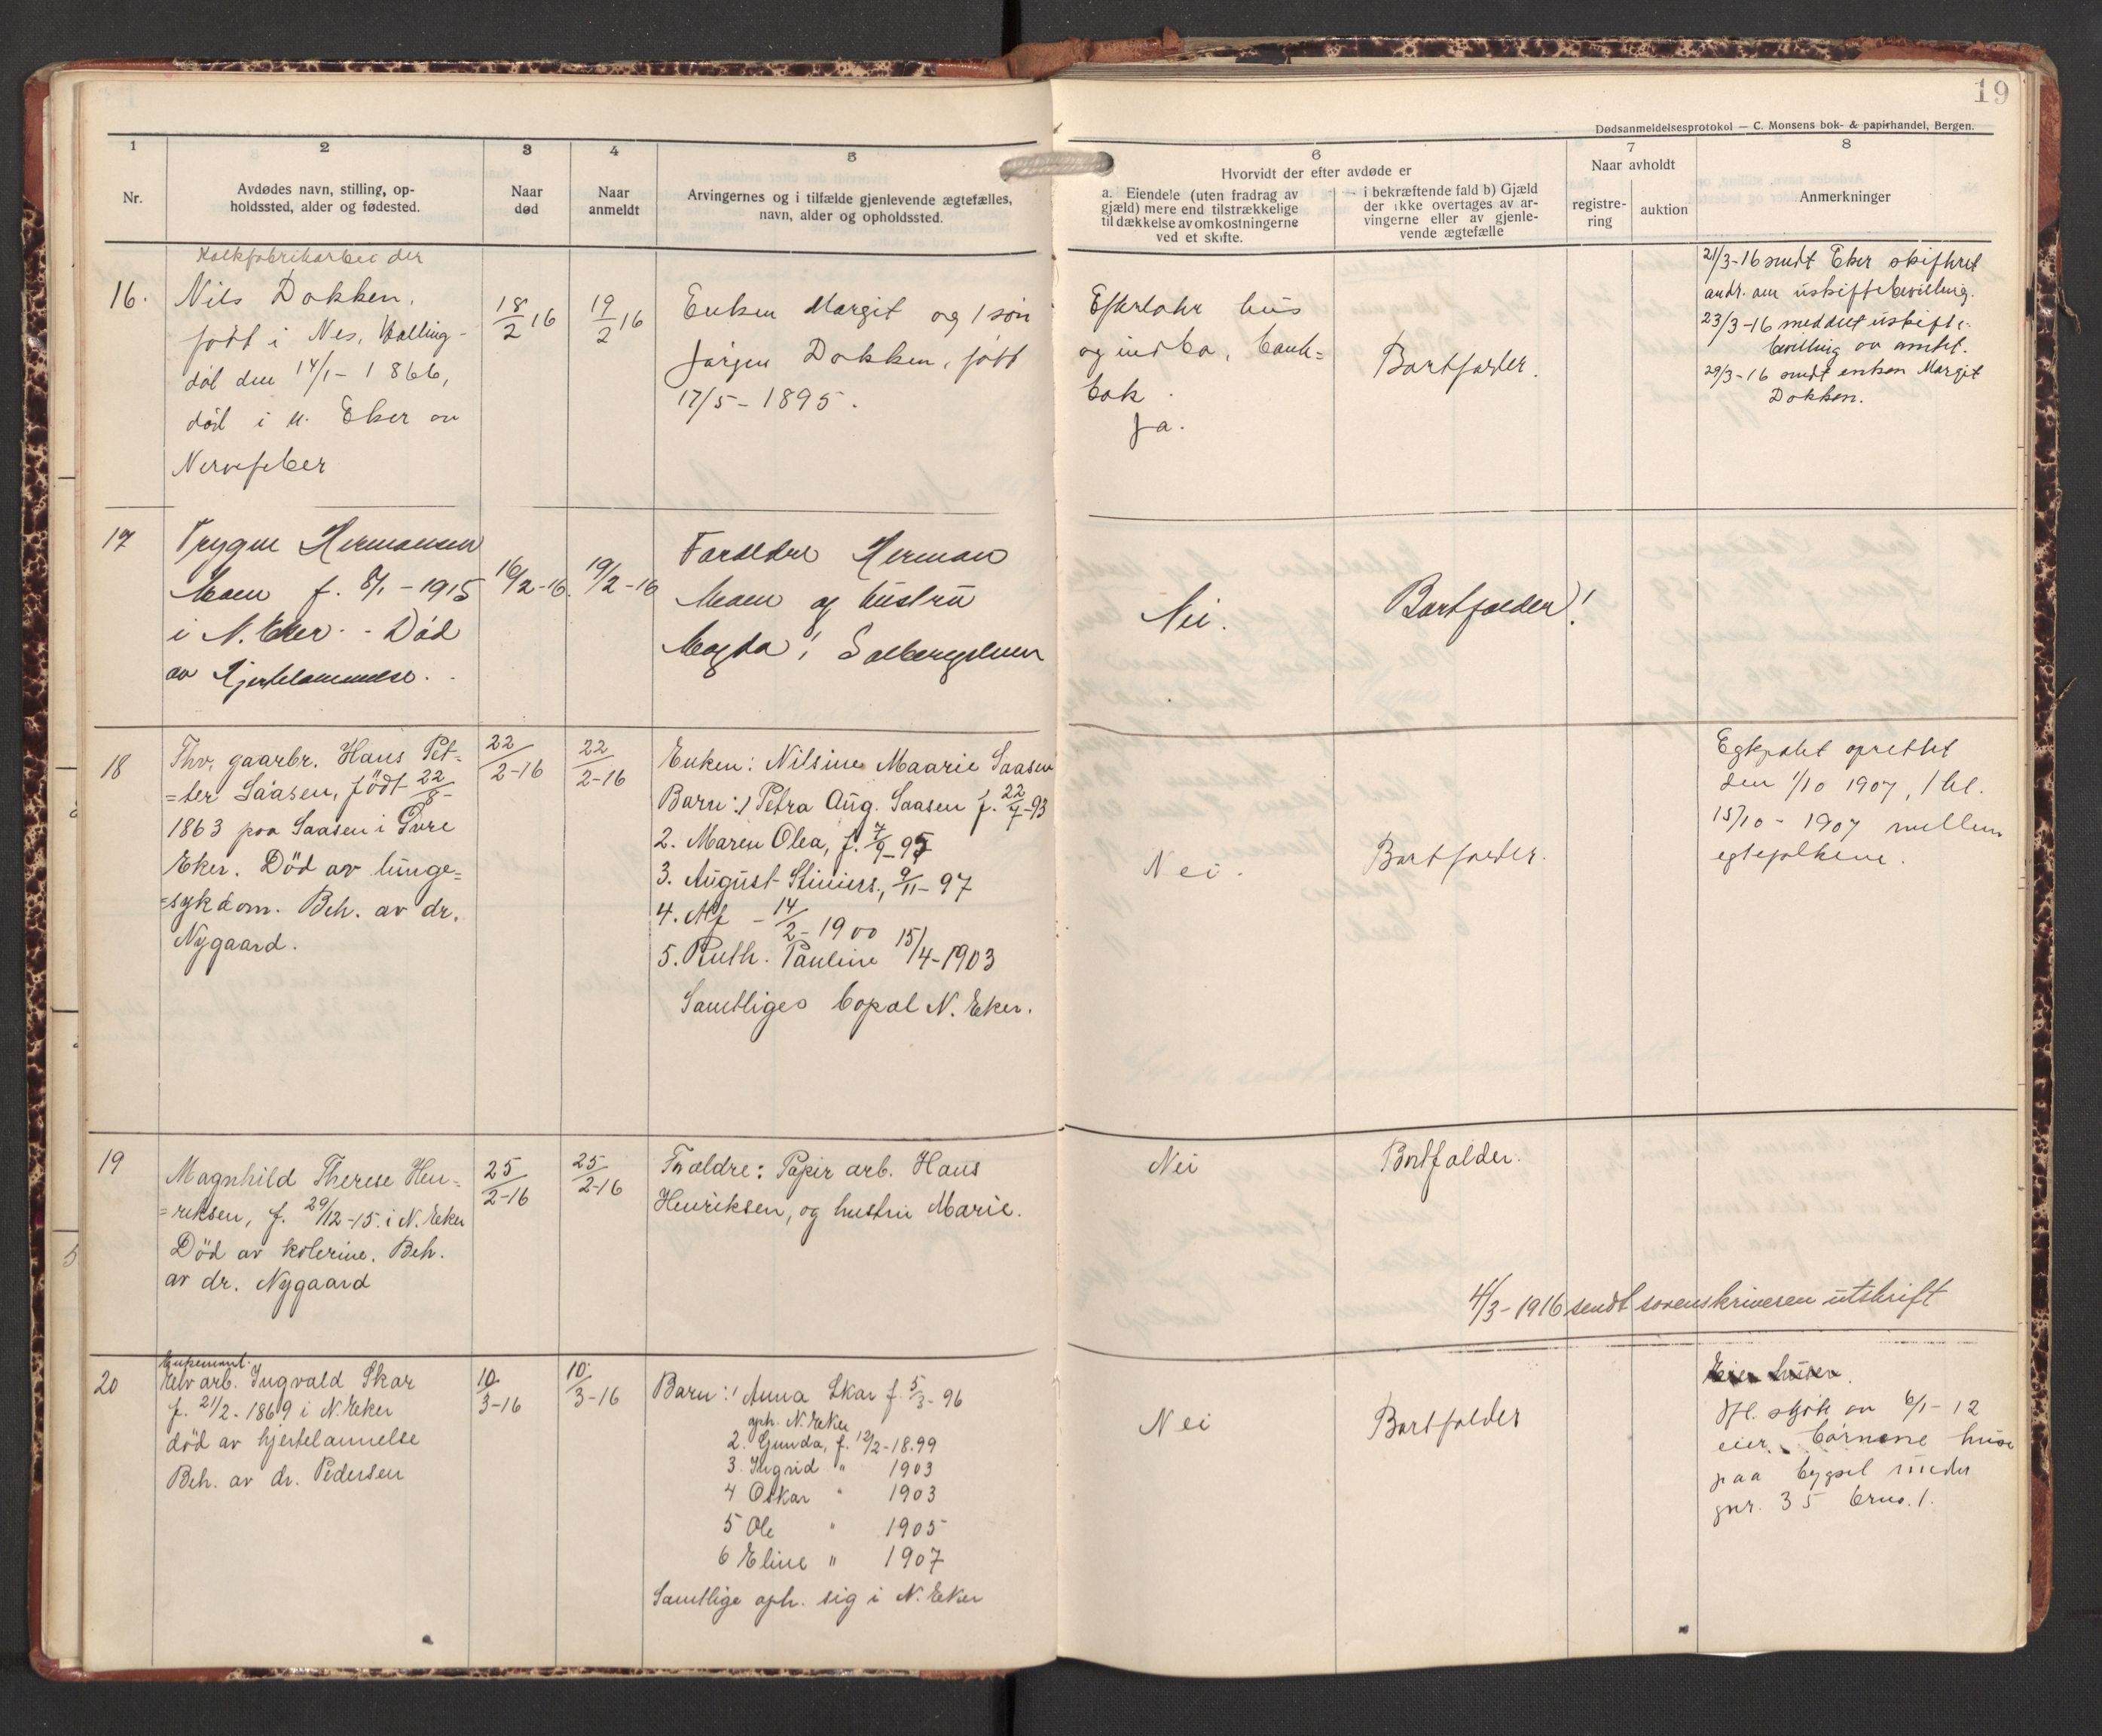 19
Dødsanmeldelsesprotokol — C. Monsens bok- & papirhandel, Bergen.
1
Nr.
2
Avdødes navn, stilling, op-
holdssted, alder og fødested.
3
Naar
død
4
Naar
anmeldt
5
Arvingernes og i tilfælde gjenlevende ægtefælles,
navn, alder og opholdssted.
6
Hvorvidt der efter avdøde er
a. Eiendele (uten fradrag av
gjæld) mere end tilstrækkelige
til dækkelse av omkostningerne
ved et skifte.
i bekræftende fald b) Gjæld
der ikke overtages av ar-
vingerne eller av gjenle-
vende ægtefælle
7
Naar avholdt
registre-
ring
auktion
8
Anmerkninger
16.
Nils Dokken,
født i Nes, Halling-
dal den 14/1 - 1866,
död i N. Eker av
Nervefeber
18/2 16
19/2 16
Enken Margit og 1 søn
Jørgen Dokken, født
17/5 - 1895.
Efterlater hus
og indbo, bank=
bok
Ja.
Bortfalder.
21/3-16 sendt Eker skifteret
andr. om uskiftebevilling.
23/3-16 meddelt uskifte-
bevilling av amtet.
29/3-16 sendt enken Margit
Dokken.
17
Trygve Hermansen
Moen f. 8/1 - 1915
i N. Eker. - Död
av Hjertelammelse.
16/2-16.
19/2-16
Foreldre Herman
Moen og hustru
Magda, Solbergelven
Nei.
Bortfalder!
18
Fhv. gaarbr. Hans Pet-
=ter Saasen, födt 22/8-
1863 paa Saasen i Øvre
Eker. Död av lunge=
=sykdom. Beh. av dr.
Nygaard.
22/2-16
22/2-16
Enken: Nilsine Maarie Saasen
Barn: 1 Petra Aug. Saasen f. 22/7-93
2. Maren Olea, f. 7/9-95
3. August 9/11-97
4. Alf - 14/2-1900
5. Ruth. Pauline 15/4-1903
Samtliges bopæl N. Eker.
Nei.
Bortfalder.
Egtepakt oprettet
den 1/10 1907, tl.
15/10 - 1907 mellem
egtefolkene.
19
Magnhild Therese Hen-
=riksen, f. 29/12-15. i N. Eker
Död av kolerine. Beh.
av dr. Nygaard
25/2-16
25/2-16
Foældre: Papir arb. Hans
Henriksen, og hustru Marie.
Nei
Bortfalder.
4/3-1916 sendt sorenskriveren utskrift
20
Enkemand.
Elv arb. Ingvald Skar
f. 21/2-1869 i N. Eker
död av hjertelammelse
Beh. av dr. Pedersen
10/3-16
10/3-16
Barn: 1 Anna Skar f. 5/3-96
oph. N. Eker
2. Gunda, f. 12/2-18.99
3. Ingrid " 1903
4 Oskar " 1903
5 Ole " 1905
6 Eline " 1907
Samtlige oph. sig i N. Eker
Nei
Bortfalder
Eier huser.
Ifl. skjøt av 6/1-12
eier börnene huse
paa bygsel under
gnr. 35 brno. 1.